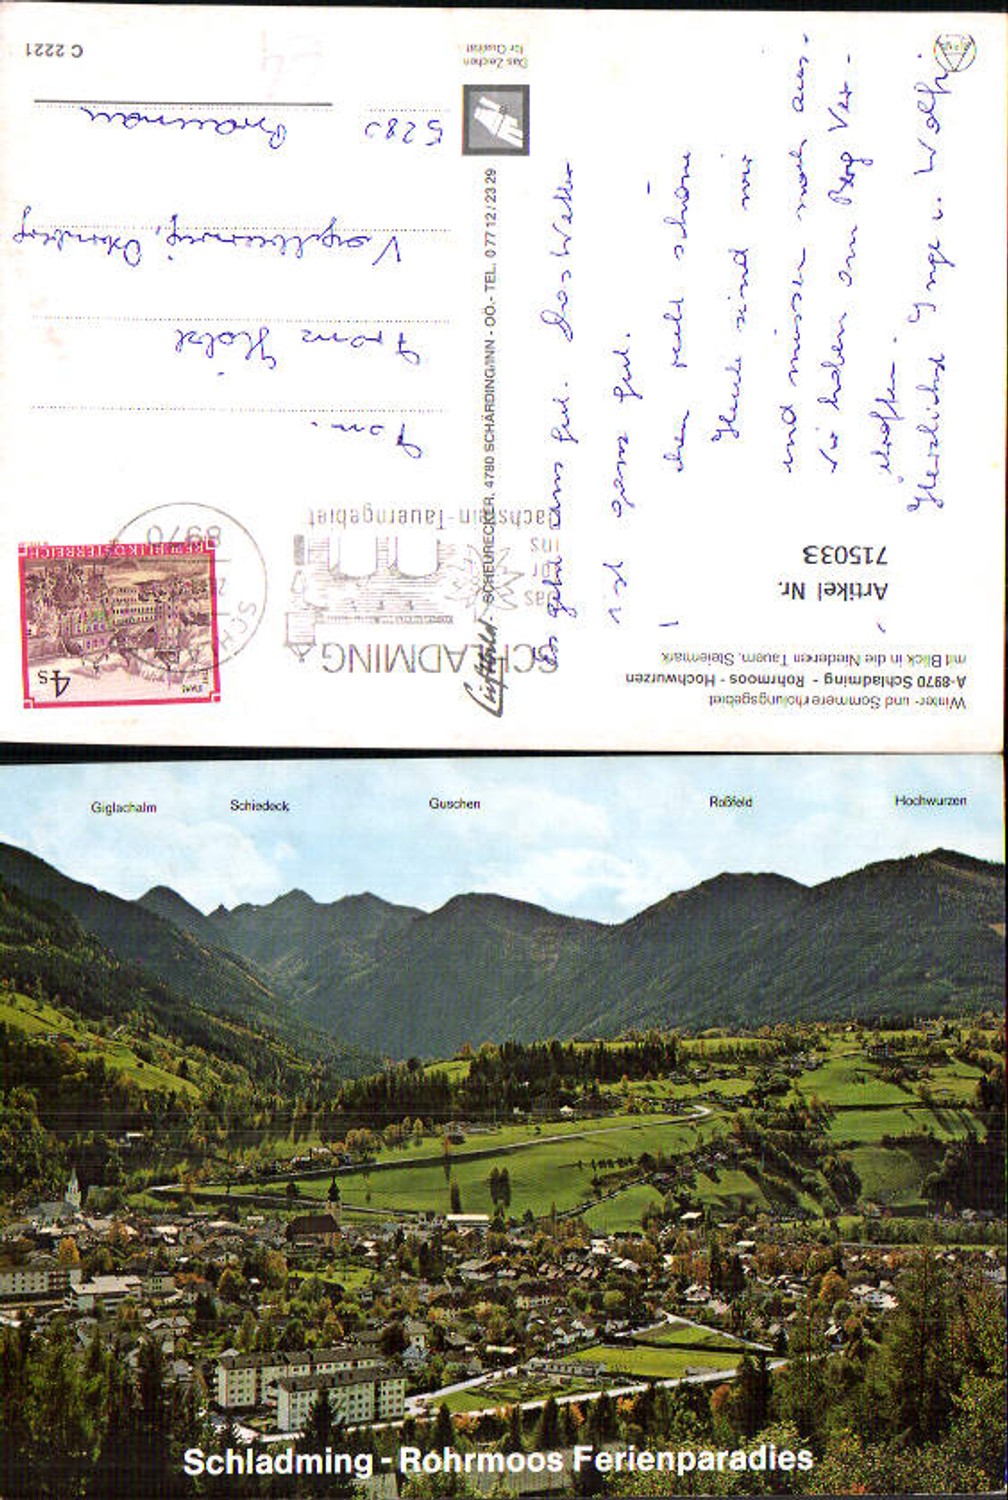 Winter- und Sommererholungsgebiet
A-8970 Schladming - Rohrmoos - Hochwurzen
mit Blick in die Niederen Tauern, Steiermark
Artikel Nr.
715033
Es geht uns gut. Das Wetter
ist ganz gut.
recht schöne
Heute sind wir
und müssen noch aus-
Wir haben am Berg Ver-
Herzlichst Inge u. Wolfi
Luftbild - SCHEURECKER, 4780 SCHÄRDING/INN - OÖ.- TEL. 0 77 12 / 23 29
Das Zeichen
für Qualität
C 2221
REPUBLIK ÖSTERREICH
4 S
8970
SCHLADMING
Das
Tor
ins
Dachstein-Tauerngebiet
Fam.
Franz
5280 Braunau
Giglachalm Schiedeck Guschen Roßfeld Hochwurzen
Schladming - Rohrmoos Ferienparadies